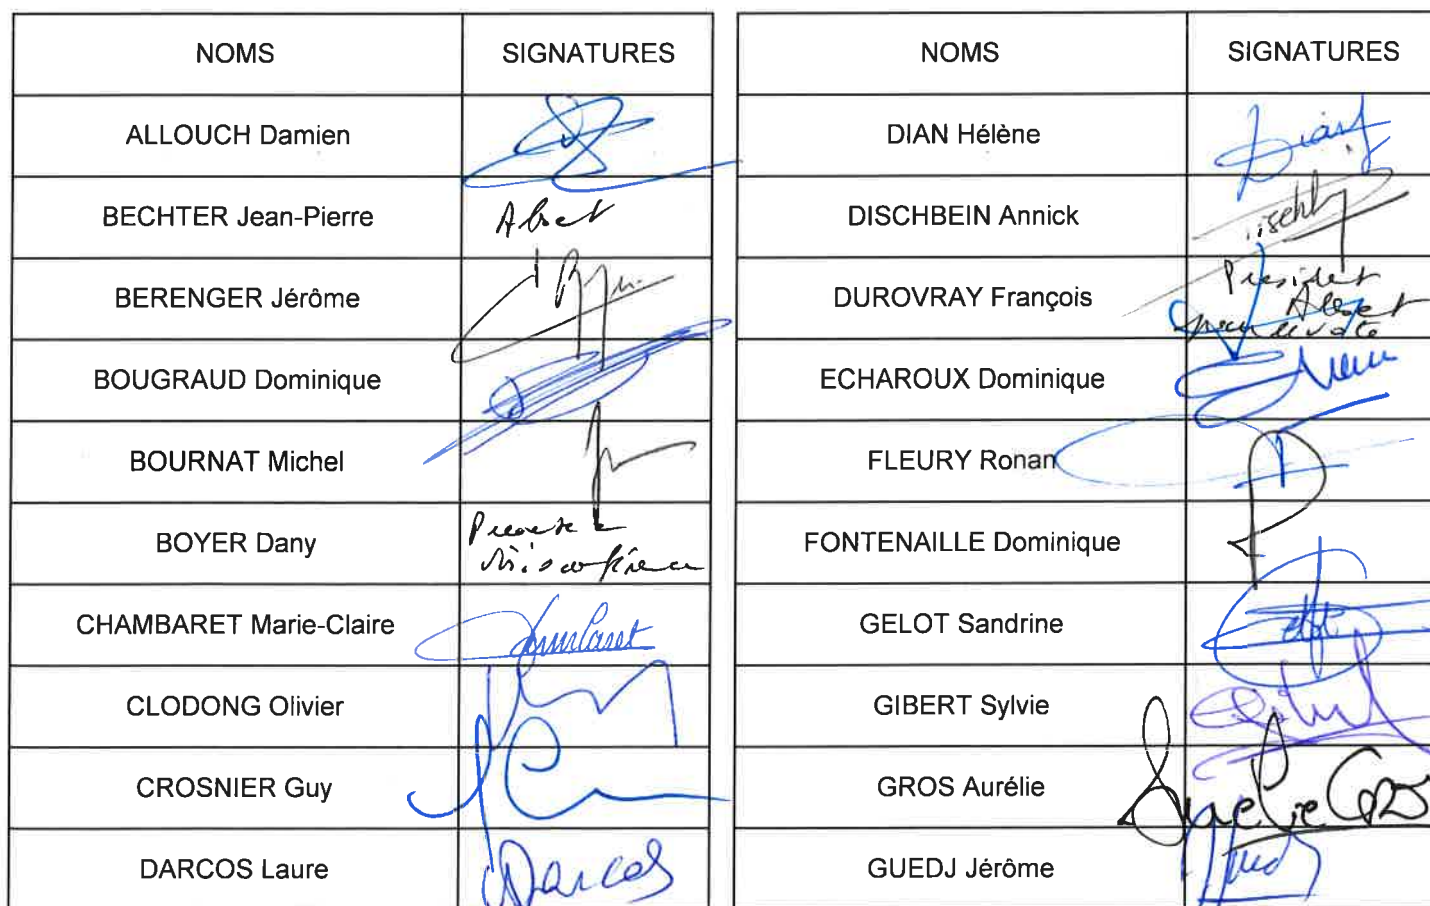 NOMS SIGNATURES
ALLOUCH Damien
BECHTER Jean-Pierre Absent
BERENGER Jérôme
BOUGRAUD Dominique
BOURNAT Michel
BOYER Dany
CHAMBARET Marie-Claire
CLODONG Olivier
CROSNIER Guy
DARCOS Laure Darcos
NOMS SIGNATURES
DIAN Hélène Dian
DISCHBEIN Annick
DUROVRAY François Président
Absent
ECHAROUX Dominique
FLEURY Ronan
FONTENAILLE Dominique
GELOT Sandrine
GIBERT Sylvie
GROS Aurélie Aurelie Gros
GUEDJ Jérôme